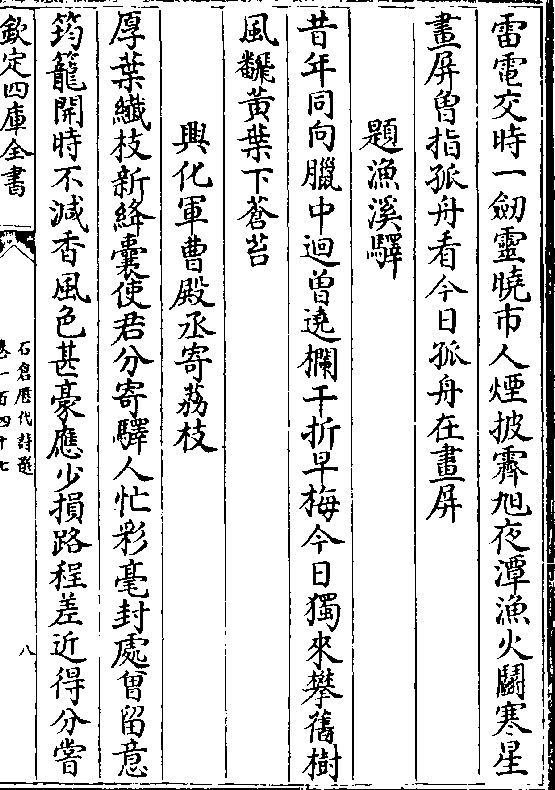 雷電交時一劒靈曉市人煙披霽旭夜潭漁火鬭寒星
畫屏曽指孤舟看今日孤舟在畫屏
題漁溪驛
昔年同向臘中迴曽遶欄干折早梅今日獨來攀舊樹
風飜黃葉下蒼苔
興化軍曹殿丞寄荔枝
厚葉纎枝新絳囊使君分寄驛人忙彩毫封處曽留意
筠籠開時不減香風色甚豪應少損路程差近得分嘗
欽定四庫全書
石倉歷代詩選
卷一百四十七
八